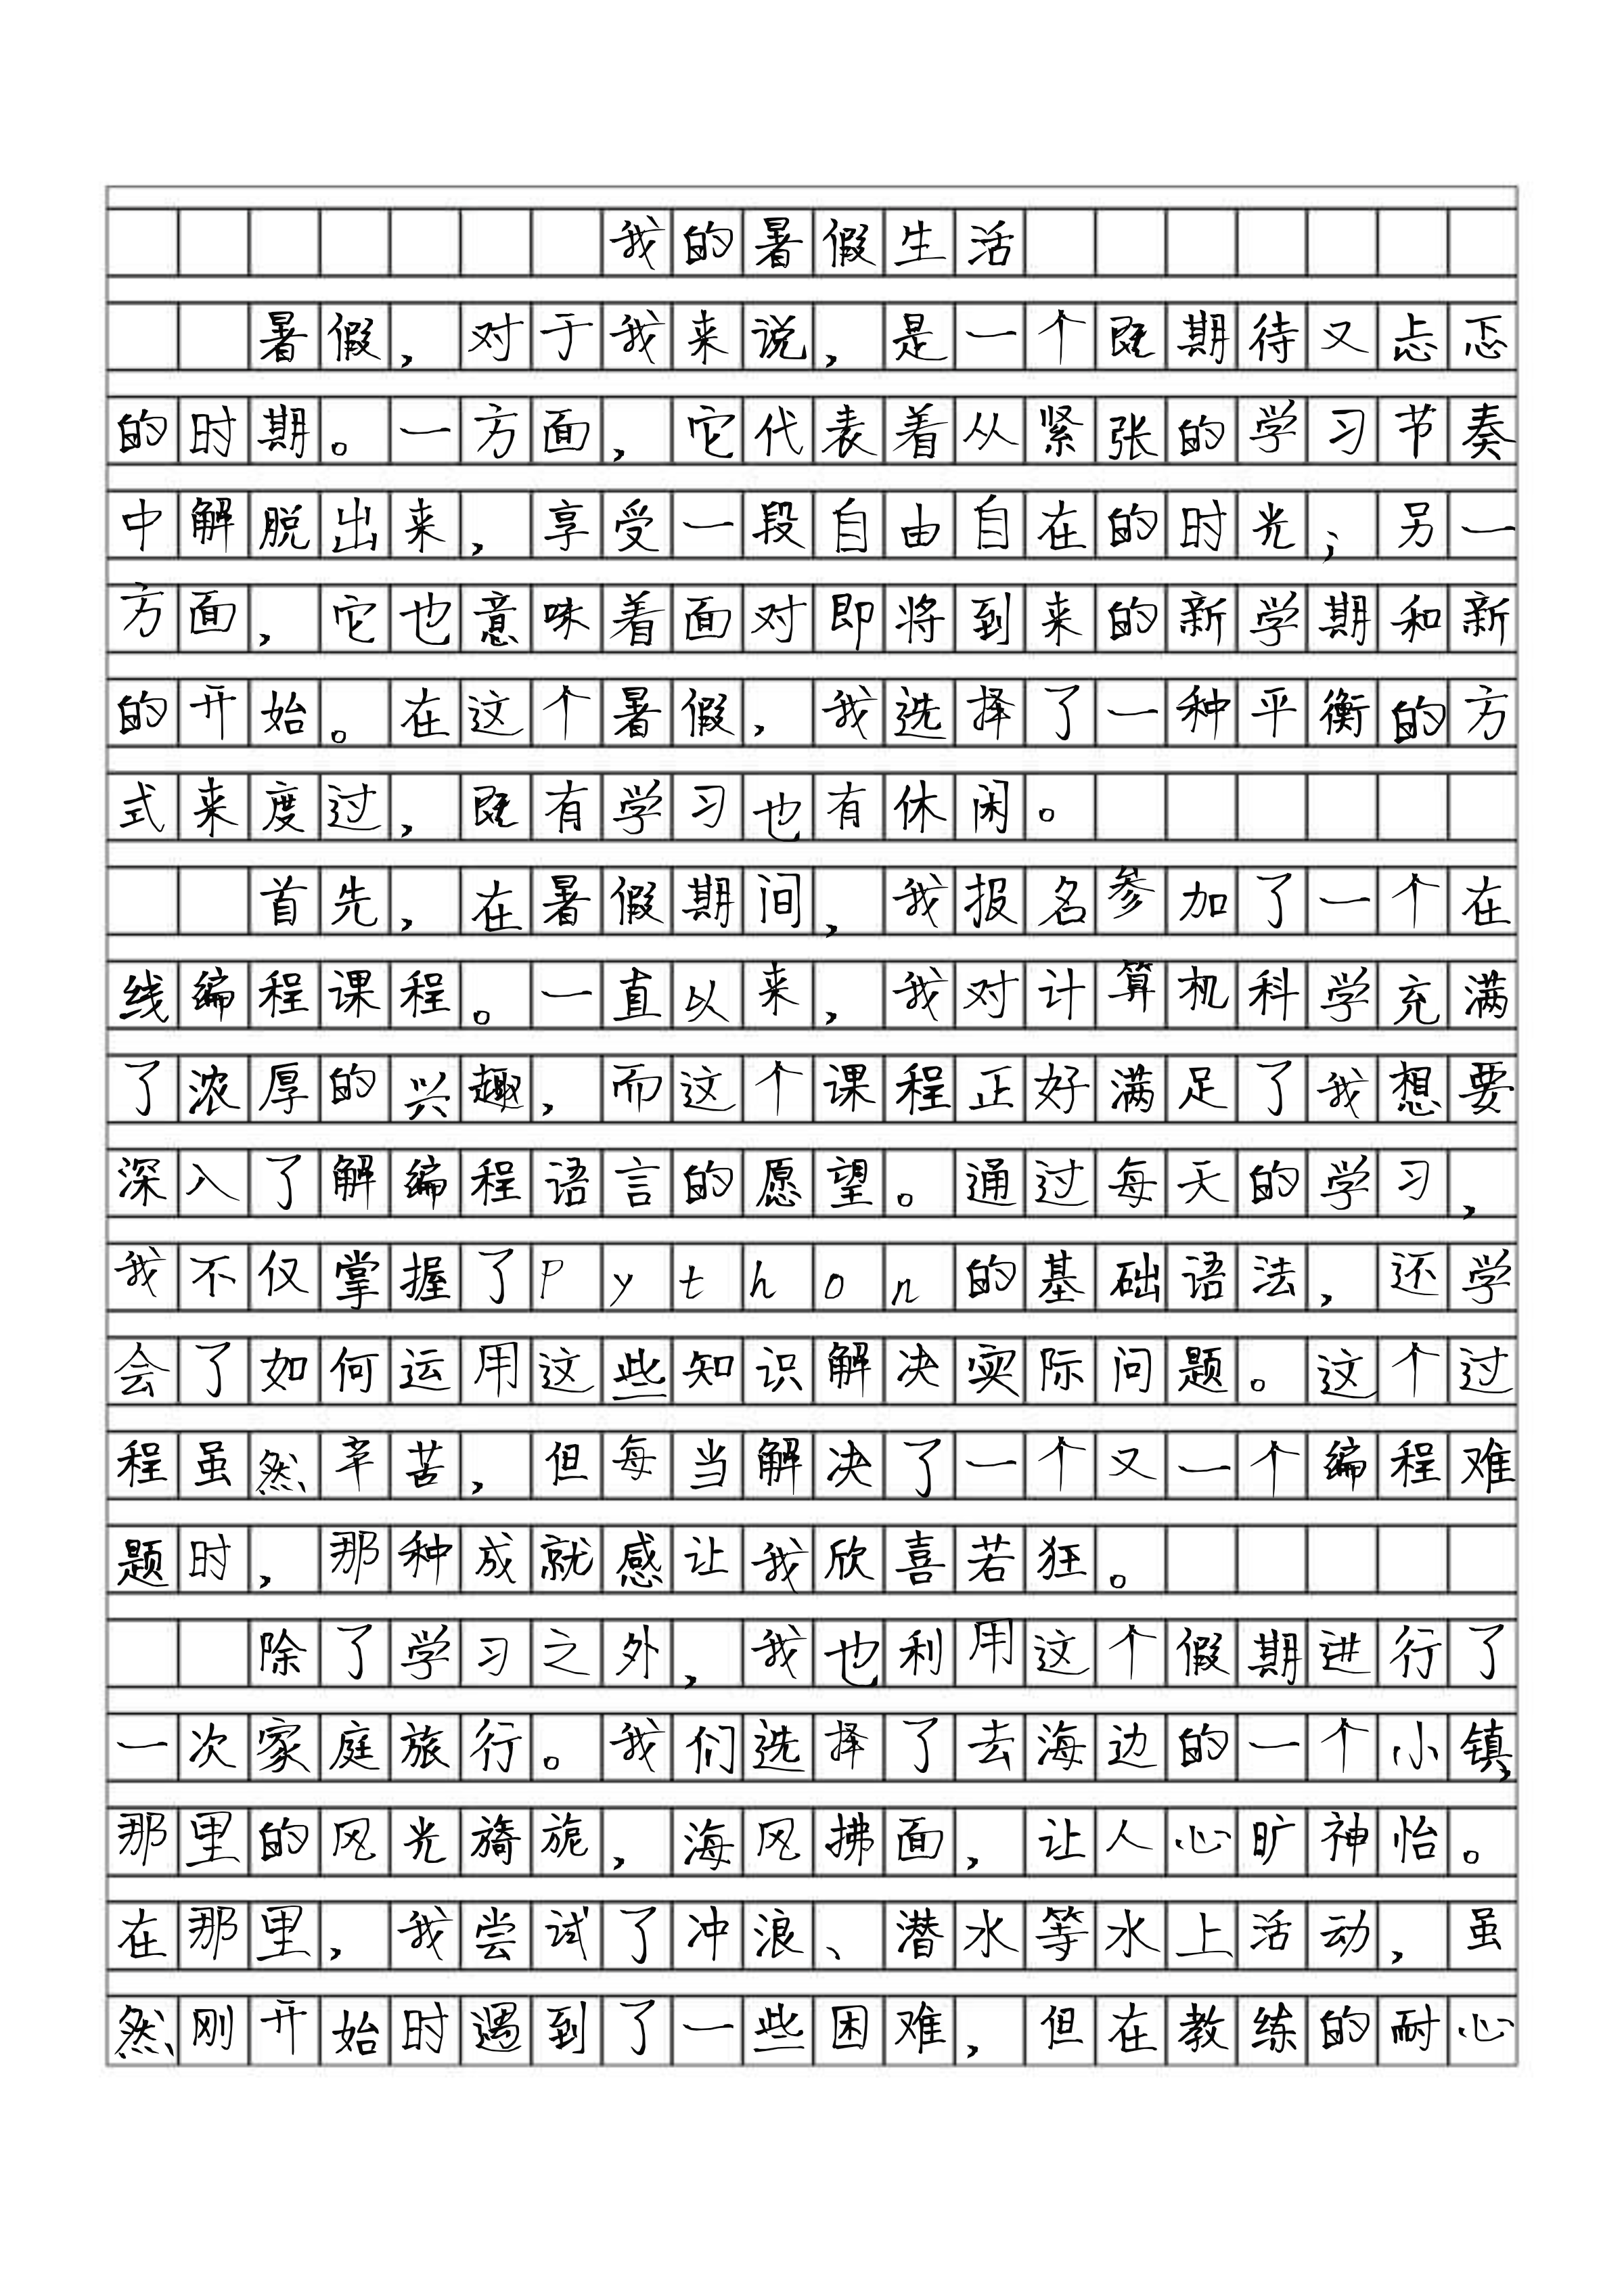 我的暑假生活
暑假，对于我来说，是一个既期待又忐忑
的时期。一方面，它代表着从紧张的学习节奏
中解脱出来，享受一段自由自在的时光；另一
方面，它也意味着面对即将到来的新学期和新
的开始。在这个暑假，我选择了一种平衡的方
式来度过，既有学习也有休闲。
首先，在暑假期间，我报名参加了一个在
线编程课程。一直以来，我对计算机科学充满
了浓厚的兴趣，而这个课程正好满足了我想要
深入了解编程语言的愿望。通过每天的学习，
我不仅掌握了Python的基础语法，还学
会了如何运用这些知识解决实际问题。这个过
程虽然辛苦，但每当解决了一个又一个编程难
题时，那种成就感让我欣喜若狂。
除了学习之外，我也利用这个假期进行了
一次家庭旅行。我们选择了去海边的一个小镇，
那里的风光旖旎，海风拂面，让人心旷神怡。
在那里，我尝试了冲浪、潜水等水上活动，虽
然刚开始时遇到了一些困难，但在教练的耐心